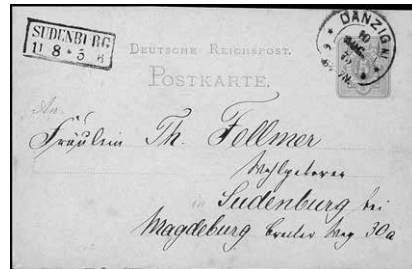 SUDENBURG
11 8 * 5 6
DANZIG
10
DEUTSCHE REICHSPOST.
POSTKARTE.
An
Fräulein Th. Follmer
Wohlgeboren
in Sudenburg bei
Magdeburg Breiter Weg 30a